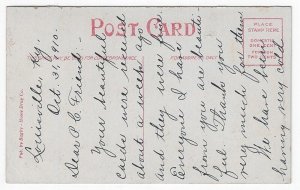 POST CARD
PLACE
STAMP HERE
DOMESTIC
ONE CENT
FOREIGN
TWO CENTS
Louisville, Ky.
Oct. 31, 1910.
Dear P. C. Friend:-
Your beautiful
cards were received
about a week ago
and they were fine.
Everyone I have
from you are beauti-
ful. Thank you
very much for them.
We have been
having very cold